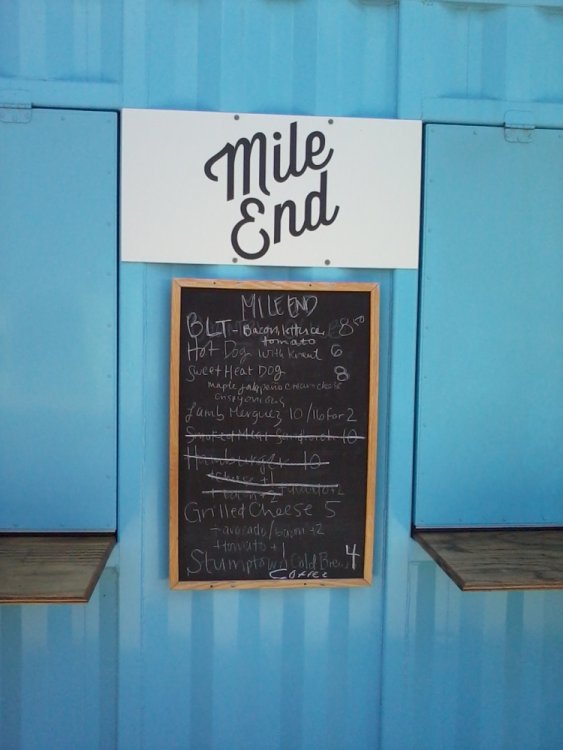 Mile
End
MILE END
BLT - Bacon, lettuce 8 50
tomato
Hot Dog with kraut 6
Sweet Heat Dog 8
maple jalapeño cream cheese
crispy onions
Lamb Merguez 10 / 16 for 2
Smoked Meat Sandwich 10
Hamburger 10
Grilled Cheese 5
+avocado/bacon +2
+tomato +1
Stumptown Cold Brew 4
Coffee